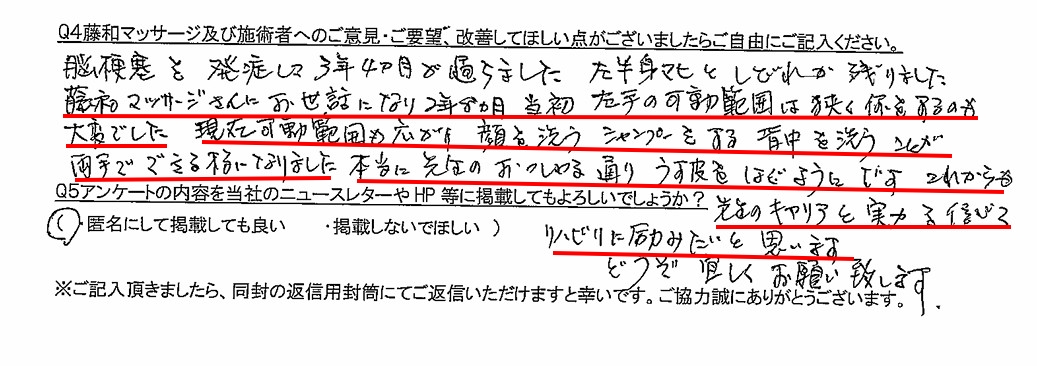 Q4藤和マッサージ及び施術者へのご意見・ご要望、改善してほしい点がございましたらご自由にご記入ください。
脳梗塞を発症して3年4カ月が過ぎました 左半身マヒとしびれが残りました
藤和マッサージさんにお世話になり2年8カ月 当初 左手の可動範囲は狭く何をするのも
大変でした 現在可動範囲も広がり 顔を洗う シャンプーをする 背中を洗う ことが
両手でできる様になりました 本当に先生のおっしゃる通り うす皮をはぐようにです これからも
Q5アンケートの内容を当社のニュースレターやHP等に掲載してもよろしいでしょうか？
先生のキャリアと実力を信じて
(・匿名にして掲載しても良い ・掲載しないでほしい )
リハビリに励みたいと思います
どうぞ宜しくお願い致します.
※ご記入頂きましたら、同封の返信用封筒にてご返信いただけますと幸いです。ご協力誠にありがとうございます。